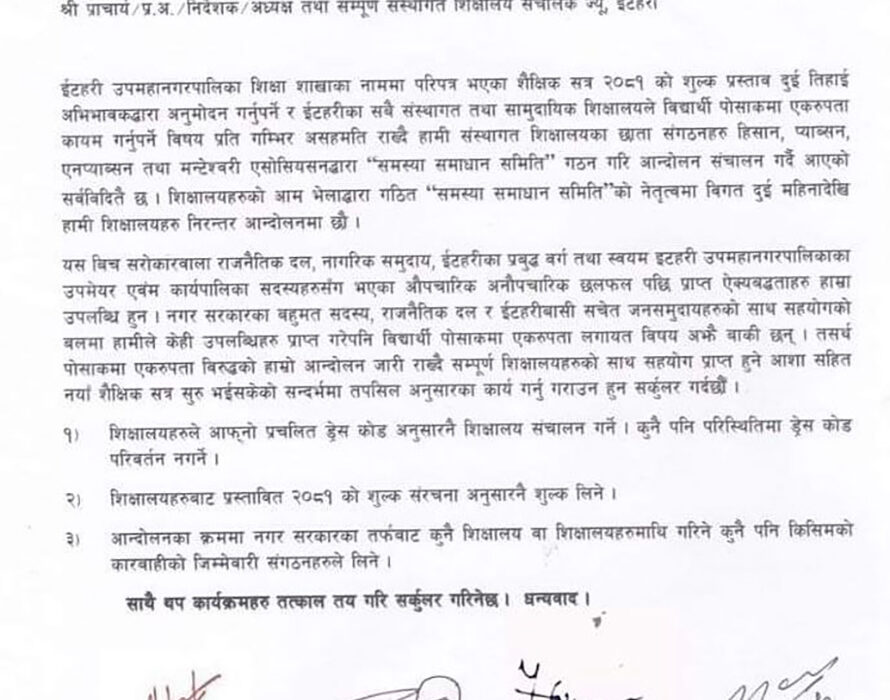 श्री प्राचार्य/प्र.अ./निर्देशक/अध्यक्ष तथा सम्पूर्ण संस्थागत शिक्षालय संचालक ज्यू, ईटहरी
ईटहरी उपमहानगरपालिका शिक्षा शाखाका नाममा परिपत्र भएका शैक्षिक सत्र २०८१ को शुल्क प्रस्ताव दुई तिहाई
अभिभावकद्वारा अनुमोदन गर्नुपर्ने र ईटहरीका सबै संस्थागत तथा सामुदायिक शिक्षालयले विद्यार्थी पोसाकमा एकरुपता
कायम गर्नुपर्ने विषय प्रति गम्भिर असहमति राख्दै हामी संस्थागत शिक्षालयका छाता संगठनहरु हिसान, प्याब्सन,
एनप्याब्सन तथा मन्टेश्वरी एसोसियसनद्वारा “समस्या समाधान समिति” गठन गरि आन्दोलन संचालन गर्दै आएको
सर्वविदितै छ । शिक्षालयहरुको आम भेलाद्वारा गठित “समस्या समाधान समिति”को नेतृत्वमा विगत दुई महिनादेखि
हामी शिक्षालयहरु निरन्तर आन्दोलनमा छौ ।
यस बिच सरोकारवाला राजनैतिक दल, नागरिक समुदाय, ईटहरीका प्रबुद्ध वर्ग तथा स्वयम इटहरी उपमहानगरपालिकाका
उपमेयर एवंम कार्यपालिका सदस्यहरुसँग भएका औपचारिक अनौपचारिक छलफल पछि प्राप्त ऐक्यबद्धताहरु हाम्रा
उपलब्धि हुन । नगर सरकारका बहुमत सदस्य, राजनैतिक दल र ईटहरीबासी सचेत जनसमुदायहरुको साथ सहयोगको
बलमा हामीले केही उपलब्धिहरु प्राप्त गरेपनि विद्यार्थी पोसाकमा एकरुपता लगायत विषय अझै बाकी छन् । तसर्थ
पोसाकमा एकरुपता विरुद्धको हाम्रो आन्दोलन जारी राख्दै सम्पूर्ण शिक्षालयहरुको साथ सहयोग प्राप्त हुने आशा सहित
नयाँ शैक्षिक सत्र सुरु भईसकेको सन्दर्भमा तपसिल अनुसारका कार्य गर्नु गराउन हुन सर्कुलर गर्दछौं ।
१) शिक्षालयहरुले आफ्नो प्रचलित ड्रेस कोड अनुसारनै शिक्षालय संचालन गर्ने । कुनै पनि परिस्थितिमा ड्रेस कोड
परिवर्तन नगर्ने ।
२) शिक्षालयहरुबाट प्रस्तावित २०८१ को शुल्क संरचना अनुसारनै शुल्क लिने ।
३) आन्दोलनका क्रममा नगर सरकारका तर्फबाट कुनै शिक्षालय वा शिक्षालयहरुमाथि गरिने कुनै पनि किसिमको
कारबाहीको जिम्मेबारी संगठनहरुले लिने ।
साथै थप कार्यक्रमहरु तत्काल तय गरि सर्कुलर गरिनेछ । धन्यवाद ।